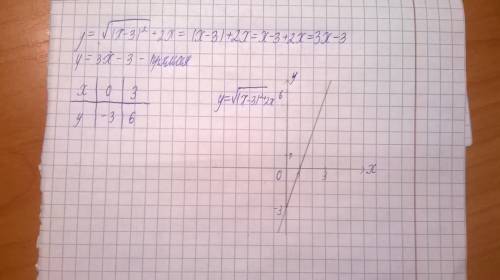 y = √(x-3)² + 2x = |x-3| + 2x = x-3+2x = 3x-3
y = 3x - 3 - прямая
x | 0 | 3
y | -3 | 6
y = √(x-3)² + 2x
y
6
0 3 x
-3